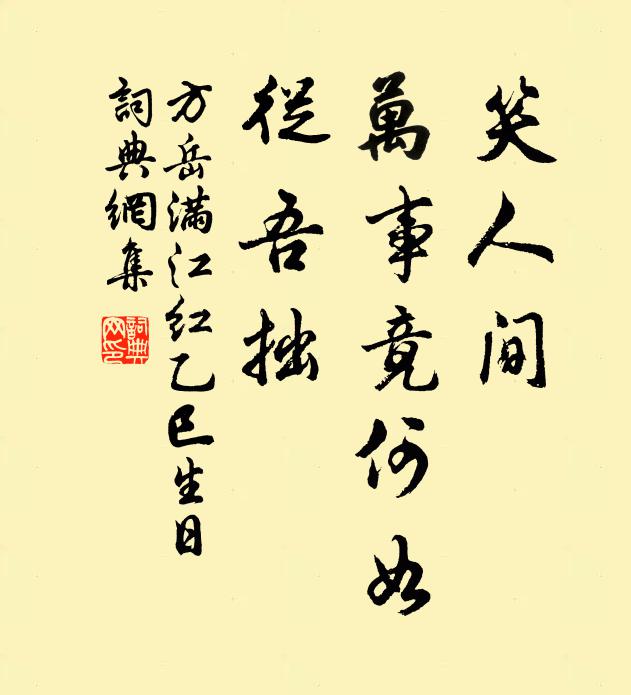 笑人间
萬事竟何如
從吾拙
方岳滿江红乙巳生日
詞典網集
詞典网印